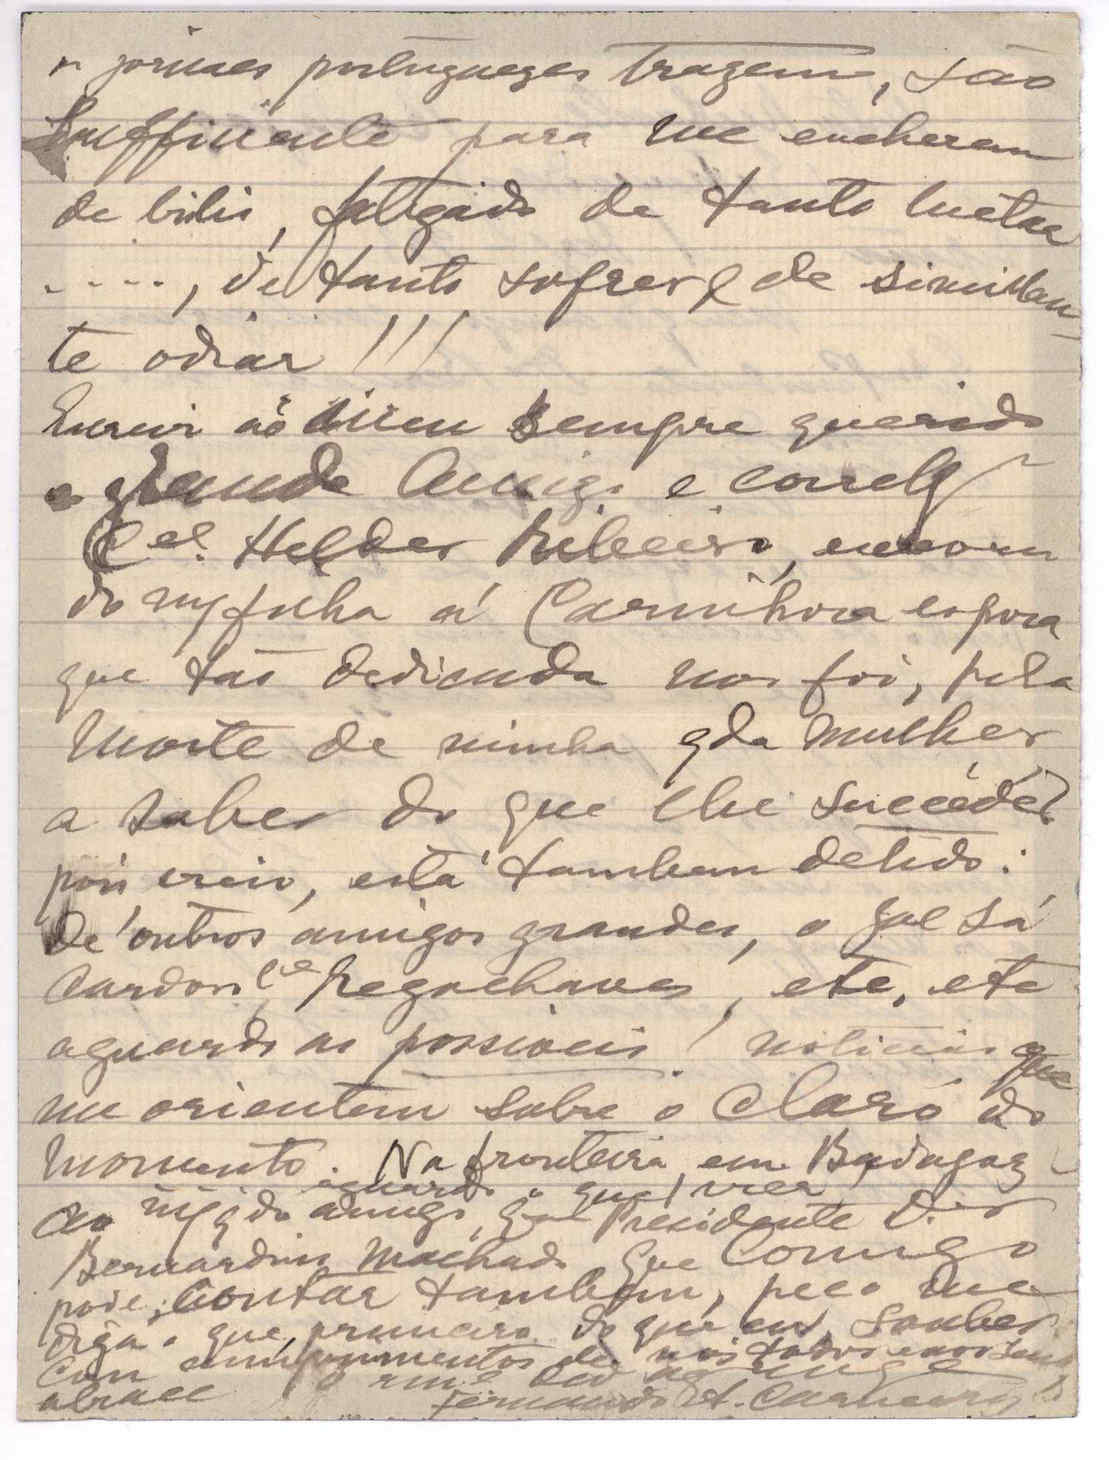 jornaes portuguezes trazem, são
sufficiente para me encheram
de bilis, fatigado de tanto luctar
...., de tanto sofrer e de similhan-
te odiar !!!
Escrevi ao meu sempre querido
e grande Amigo e correlg
Cel. Helder Ribeiro,
do filha á esposa
que tão dedicada nos foi, pela
Morte de minha qda Mulher,
a saber do que lhe succedeu
pois creio, está tambem detido.
De outros amigos grandes, o Gal Sá
Cardoso, Cel Pegochaves, etc, etc
aguardo as possiveis! noticias que
me orientem sobre o claro do
momento. Na fronteira, em Badajoz
aguardo o que
Ao m qdo amigo, Presidente Dor
Bernardino Machado que Comigo
pode, contar tambem, peço me
diga o que, primeiro do que eu, souber.
Com cumprimentos de nós todos
abrace o seu amigo
Fernando A. Carneiro